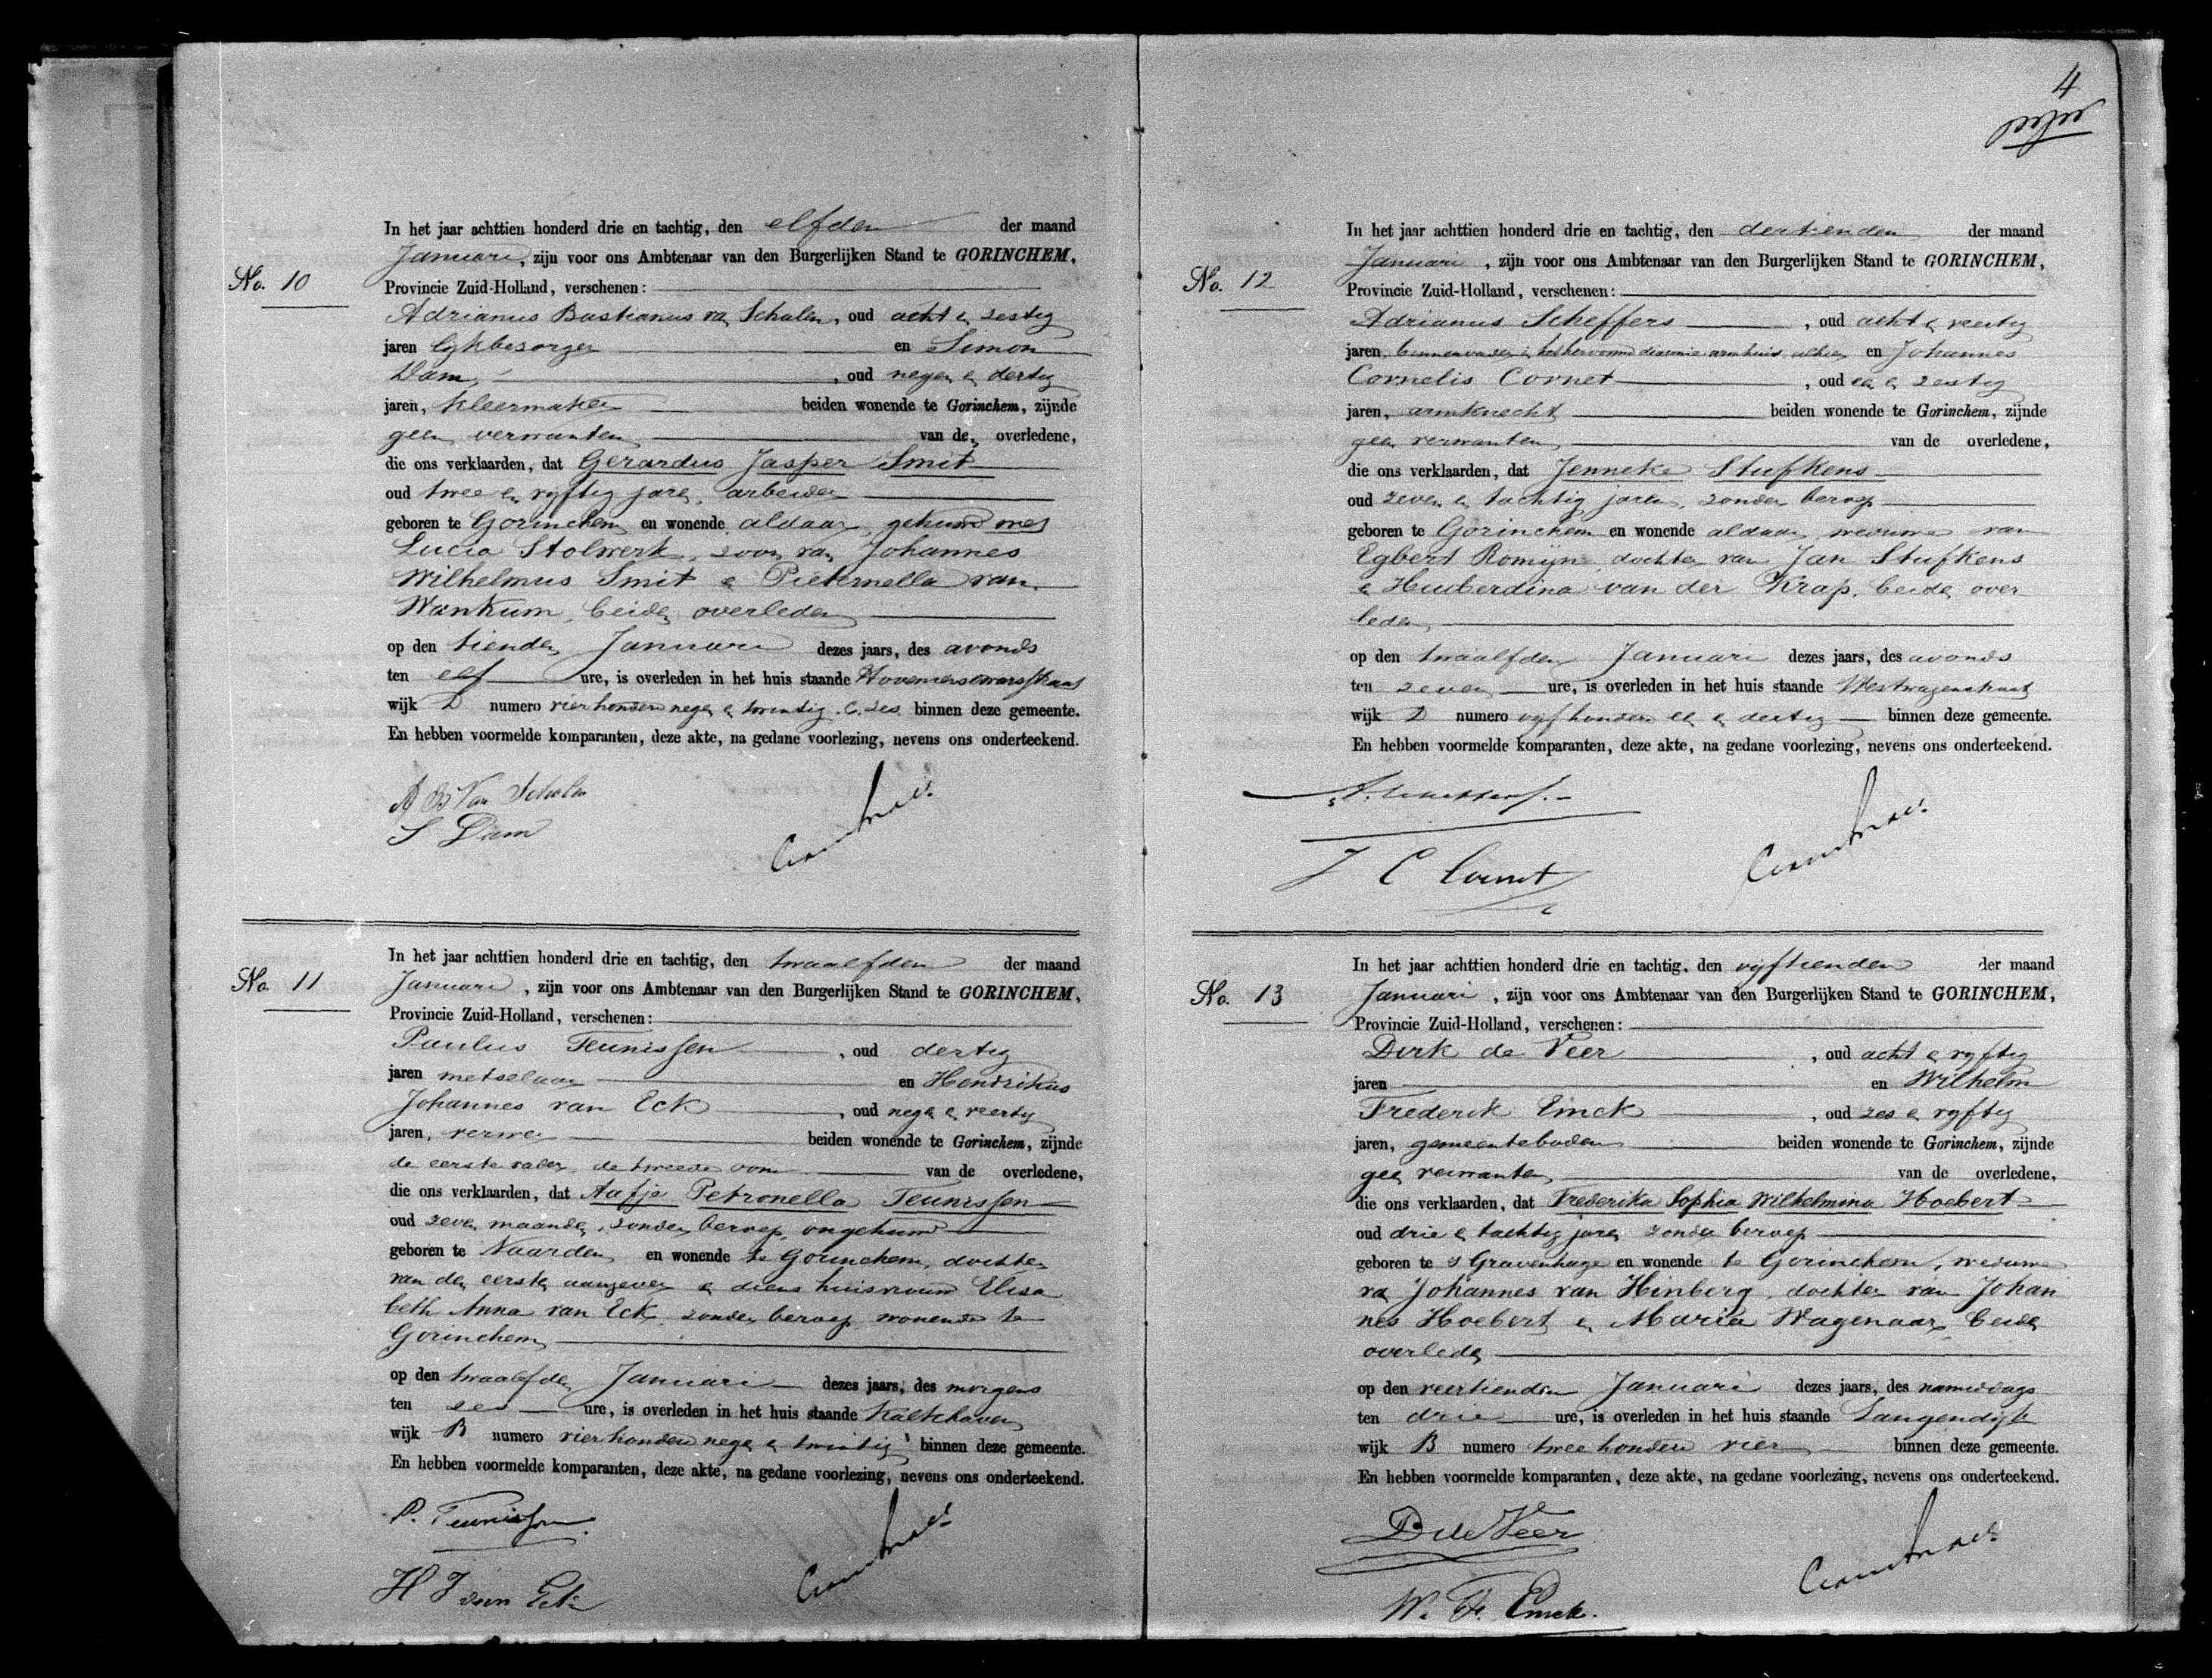 4
In het jaar achttien honderd drie en tachtig, den elfden der maand
Januari, zijn voor ons Ambtenaar van den Burgerlijken Stand te GORINCHEM,
No. 10
Provincie Zuid-Holland, verschenen:
Adrianus Bastianus van Schalen, oud acht en zestig
jaren Lijkbezorger en Simon
Dam, oud negen en dertig
jaren, kleermaker beiden wonende te Gorinchem, zijnde
geen verwanten van den overledene,
die ons verklaarden, dat Gerardus Jasper Smit
oud twee en vijftig jaren, arbeider
geboren te Gorinchem en wonende aldaar, gehuwd met
Lucia Stolwerk, zoon van Johannes
Wilhelmus Smit en Pieternella van
Wankum, beiden overleden
op den tienden Januari dezes jaars, des avonds
ten elf ure, is overleden in het huis staande
wijk D numero vierhonderd negen en twintig C. zes binnen deze gemeente.
En hebben voormelde komparanten, deze akte, na gedane voorlezing, nevens ons onderteekend.
A B Van Schalen
S Dam
In het jaar achttien honderd drie en tachtig, den twaalfden der maand
No. 11
Januari, zijn voor ons Ambtenaar van den Burgerlijken Stand te GORINCHEM,
Provincie Zuid-Holland, verschenen:
Paulus Teunissen, oud dertig
jaren metselaar en Hendrikus
Johannes van Eck, oud negen en veertig
jaren, verwer beiden wonende te Gorinchem, zijnde
de eerste vader, de tweede oom van de overledene,
die ons verklaarden, dat Aafje Petronella Teunissen
oud zeven maanden, zonder beroep, ongehuwd
geboren te Naarden en wonende te Gorinchem, dochter
van den eersten aangever en diens huisvrouw Elisa
beth Anna van Eck, zonder beroep wonende te
Gorinchem
op den twaalfden Januari dezes jaars, des morgens
ten zes ure, is overleden in het huis staande Kalkhaven
wijk B numero vierhonderd negen en twintig binnen deze gemeente.
En hebben voormelde komparanten, deze akte, na gedane voorlezing, nevens ons onderteekend.
P. Teunissen
H J van Eck
In het jaar achttien honderd drie en tachtig, den dertienden der maand
Januari, zijn voor ons Ambtenaar van den Burgerlijken Stand te GORINCHEM,
No. 12
Provincie Zuid-Holland, verschenen:
Adrianus Scheffers, oud acht en veertig
jaren, binnenvader in het hervormd diaconie armhuis alhier, en Johannes
Cornelis Cornet, oud een en zestig
jaren, armknecht beiden wonende te Gorinchem, zijnde
geen verwanten van de overledene,
die ons verklaarden, dat Jenneke Stufkens
oud zeven en tachtig jaren, zonder beroep
geboren te Gorinchem en wonende aldaar, weduwe van
Egbert Romijn, dochter van Jan Stufkens
en Huiberdina van der Krap, beiden over
leden
op den twaalfden Januari dezes jaars, des avonds
ten zeven ure, is overleden in het huis staande Westwagenstraat
wijk D numero vijf honderd een en dertig binnen deze gemeente.
En hebben voormelde komparanten, deze akte, na gedane voorlezing, nevens ons onderteekend.
J C Cornet
In het jaar achttien honderd drie en tachtig, den vijftienden der maand
No. 13
Januari, zijn voor ons Ambtenaar van den Burgerlijken Stand te GORINCHEM,
Provincie Zuid-Holland, verschenen:
Dirk de Veer, oud acht en vijftig
jaren en Wilhelm
Frederik Emck, oud zes en vijftig
jaren, gemeentebode beiden wonende te Gorinchem, zijnde
geen verwanten van de overledene,
die ons verklaarden, dat Frederika Sophia Wilhelmina Hoebert
oud drie en tachtig jaren zonder beroep
geboren te s Gravenhage en wonende te Gorinchem, weduwe
van Johannes van Hinberg, dochter van Johan
nes Hoebert en Maria Wagenaar, beiden
overleden
op den veertienden Januari dezes jaars, des namiddags
ten drie ure, is overleden in het huis staande Langendijk
wijk B numero twee honderd vier binnen deze gemeente.
En hebben voormelde komparanten, deze akte, na gedane voorlezing, nevens ons onderteekend.
D de Veer
W. F. Emck.